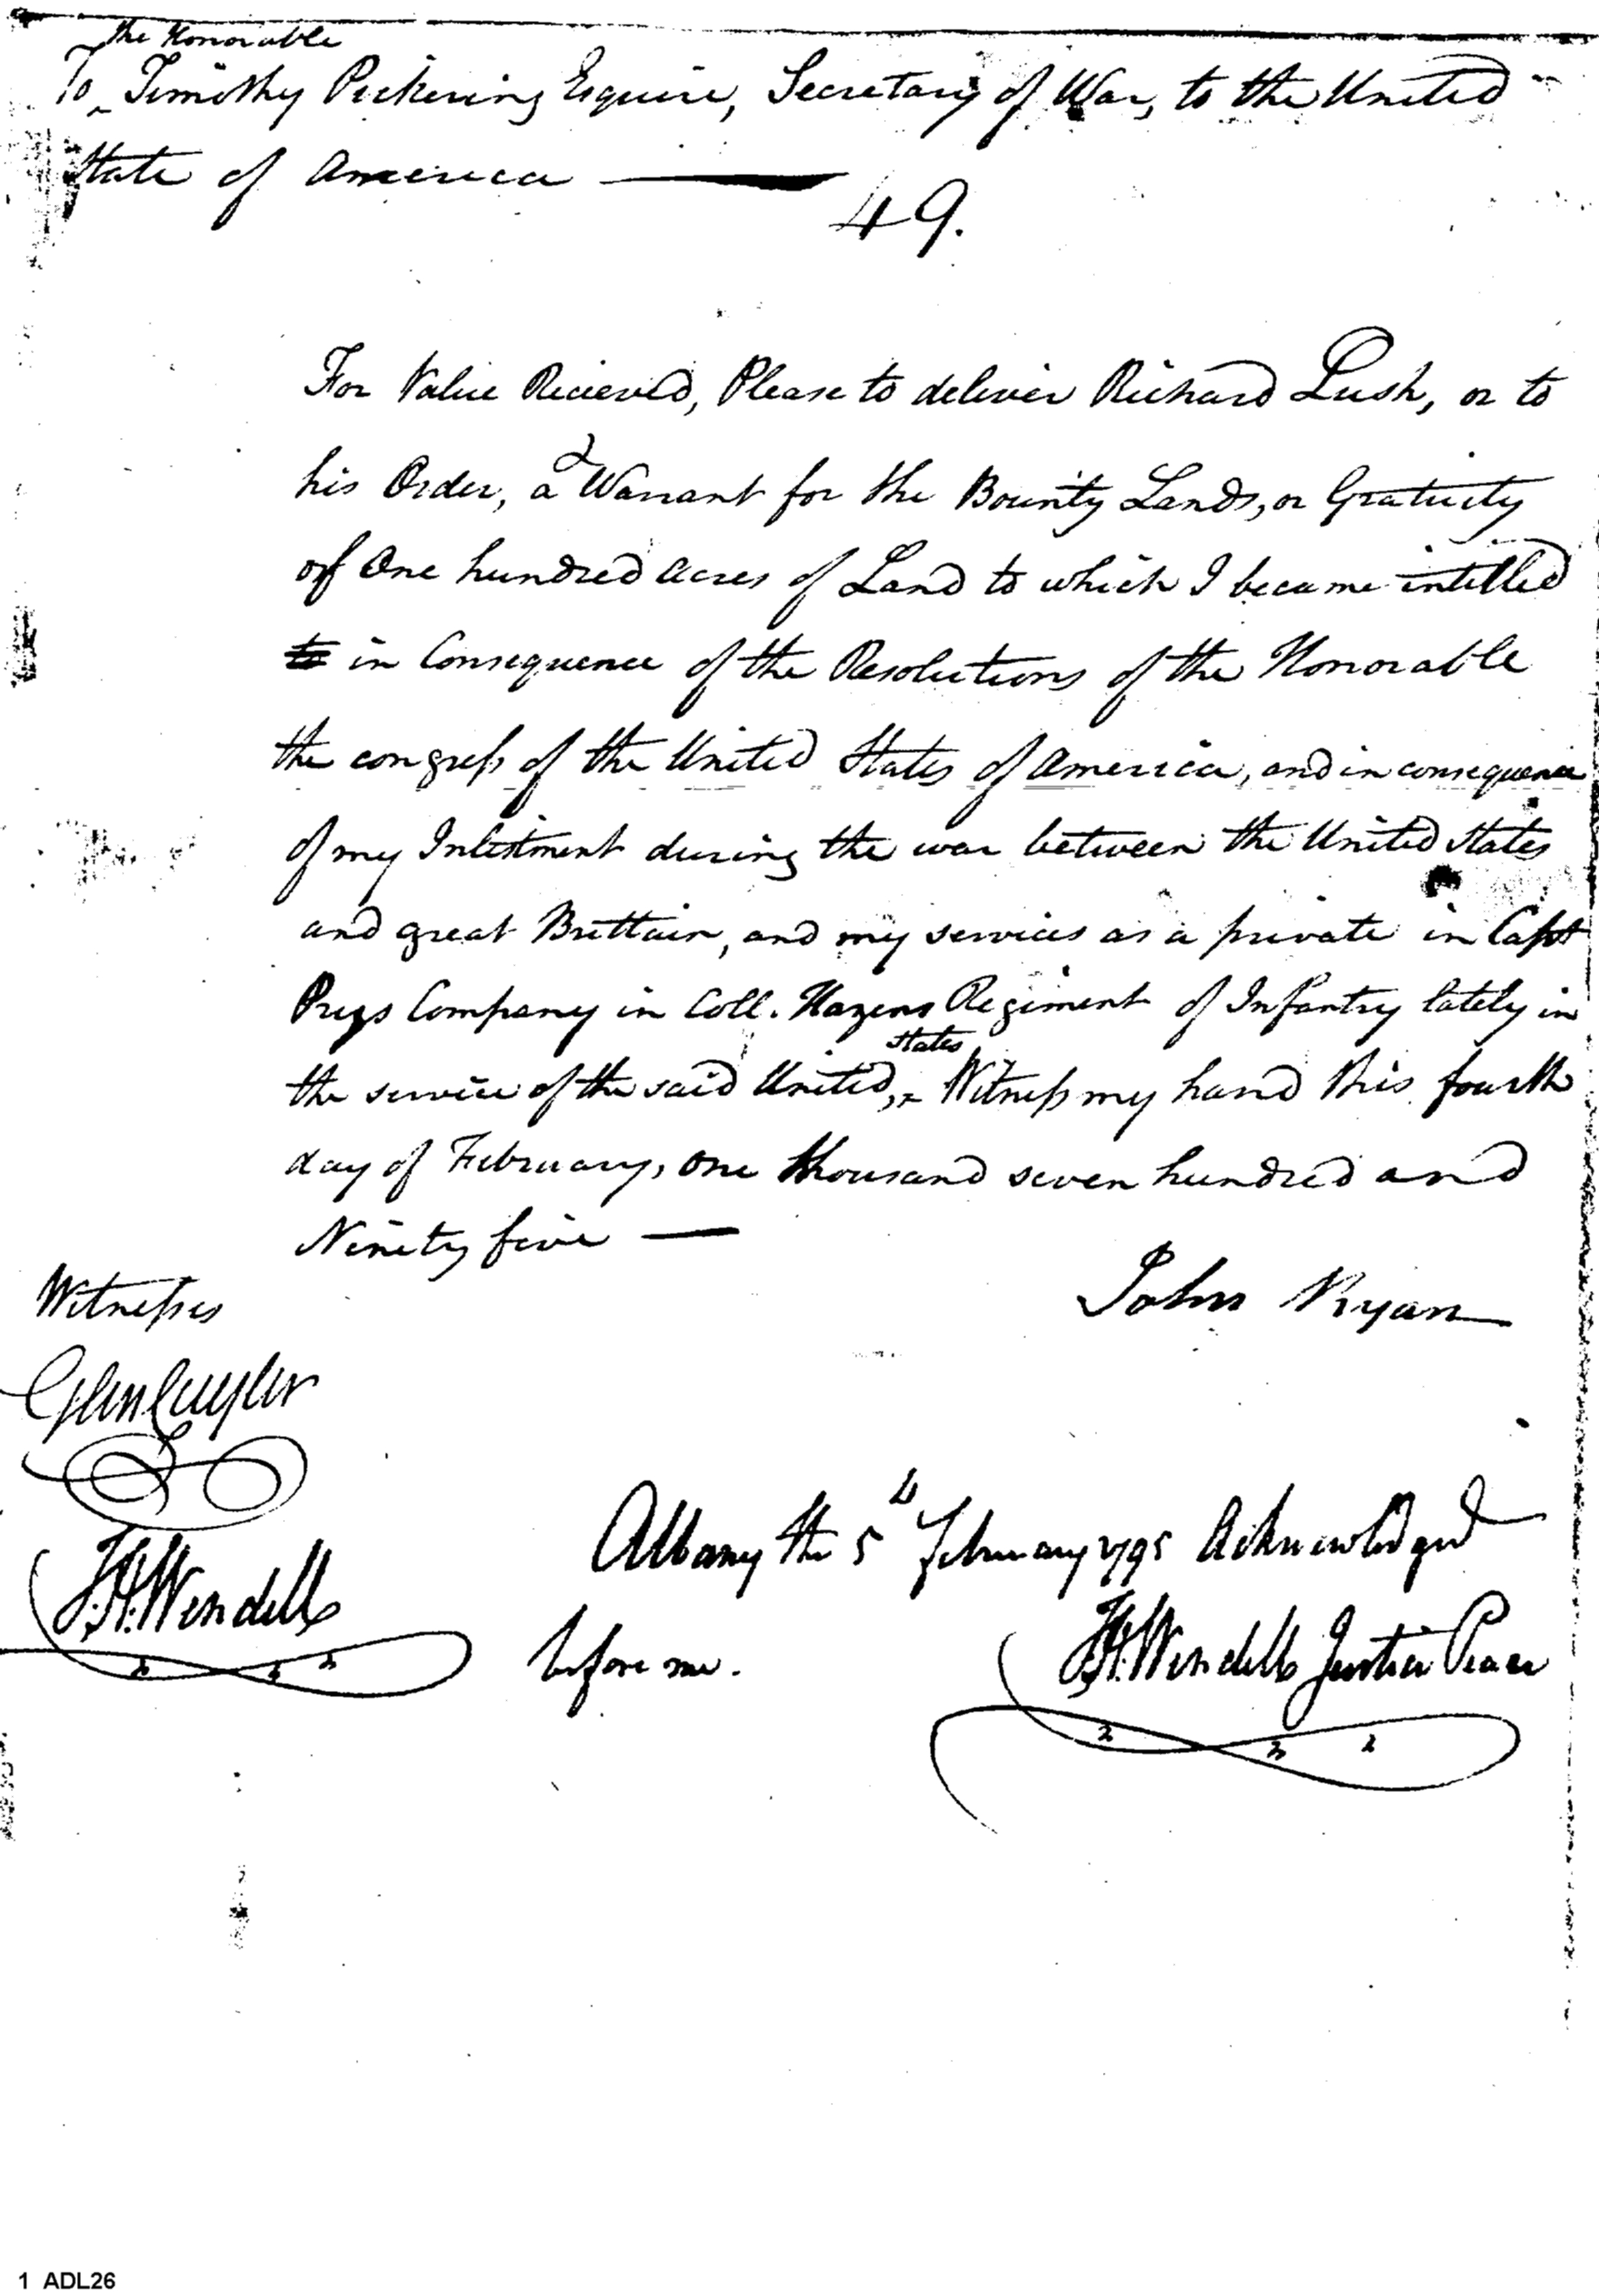 the Honorable
To ^ Timothy Pickering Esquire, Secretary of War, to the United
State of America —
49.
For Value Recieved, Please to deliver Richard Lush, or to
his Order, a Warrant for the Bounty Lands, or Gratuity
of One hundred acres of Land to which I became intitled
to in Consequence of the Resolutions of the Honorable
the congress of the United States of America, and in consequence
of my Inlistment during the war between the United States
and great Brittain, and my services as a private in Capt
Prys Company in Coll. Hazens Regiment of Infantry lately in
States
the service of the said United, ^ Witness my hand this fourth
day of February, One thousand seven hundred and
Ninety five —
John Ryan
Witnesses
Glen Cuyler
H. Wendell
Albany the 5th February 1795 Acknowledged
before me.
H. Wendell Justice Peace
1 ADL26